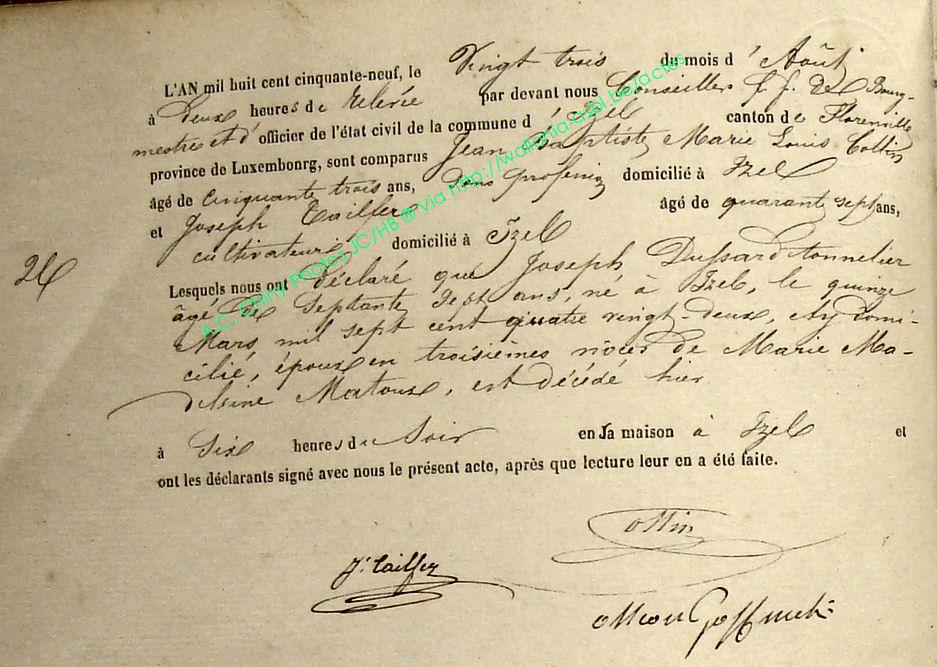 L'AN mil huit cent cinquante-neuf, le Vingt trois du mois d'Août
à Deux heures de relevée par devant nous Conseiller f.f. de Bourg-
mestre et d'officier de l'état civil de la commune d'Izel canton de Florenville
province de Luxembourg, sont comparus Jean Baptiste Marie Louis Collin
âgé de Cinquante trois ans, Sans profession domicilié à Izel
et Joseph Tailfer âgé de quarante sept ans,
cultivateurs domicilié à Izel
26
Lesquels nous ont déclaré que Joseph Dussard tonnelier
âgé de Septante Sept ans, né à Izel, le quinze
Mars mil sept cent quatre vingt-deux, et y domi-
cilié, époux en troisièmes nôces de Marie Ma-
deleine Matoux, est décédé hier
à Six heures du Soir en sa maison à Izel et
ont les déclarants signé avec nous le présent acte, après que lecture leur en a été faite.
J. Tailfer
A.C. Chiny Photos JC/HB ® Via http://wallonia-asbl.be/actes